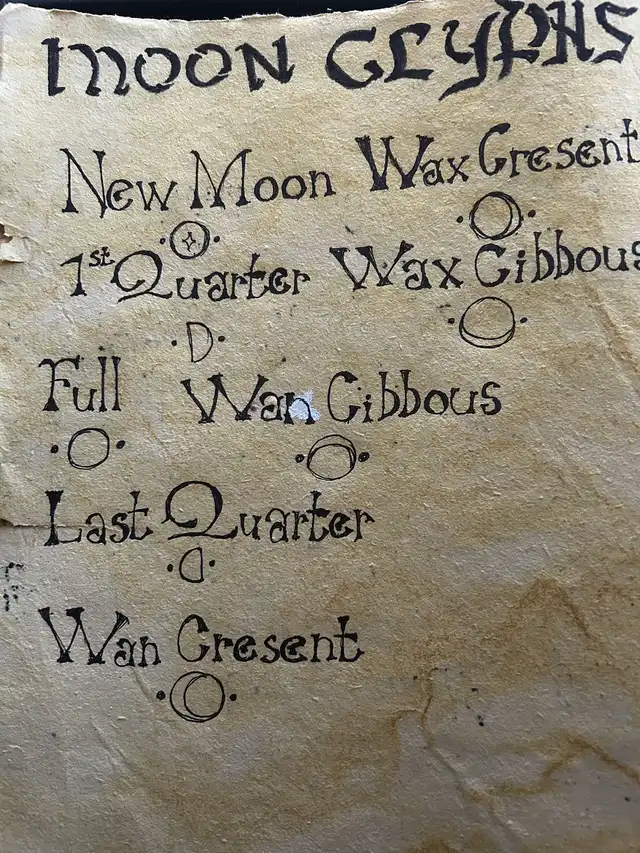 MOON GLYPHS
New Moon Wax Cresent
1st Quarter Wax Gibbous
Full Wan Gibbous
Last Quarter
Wan Cresent